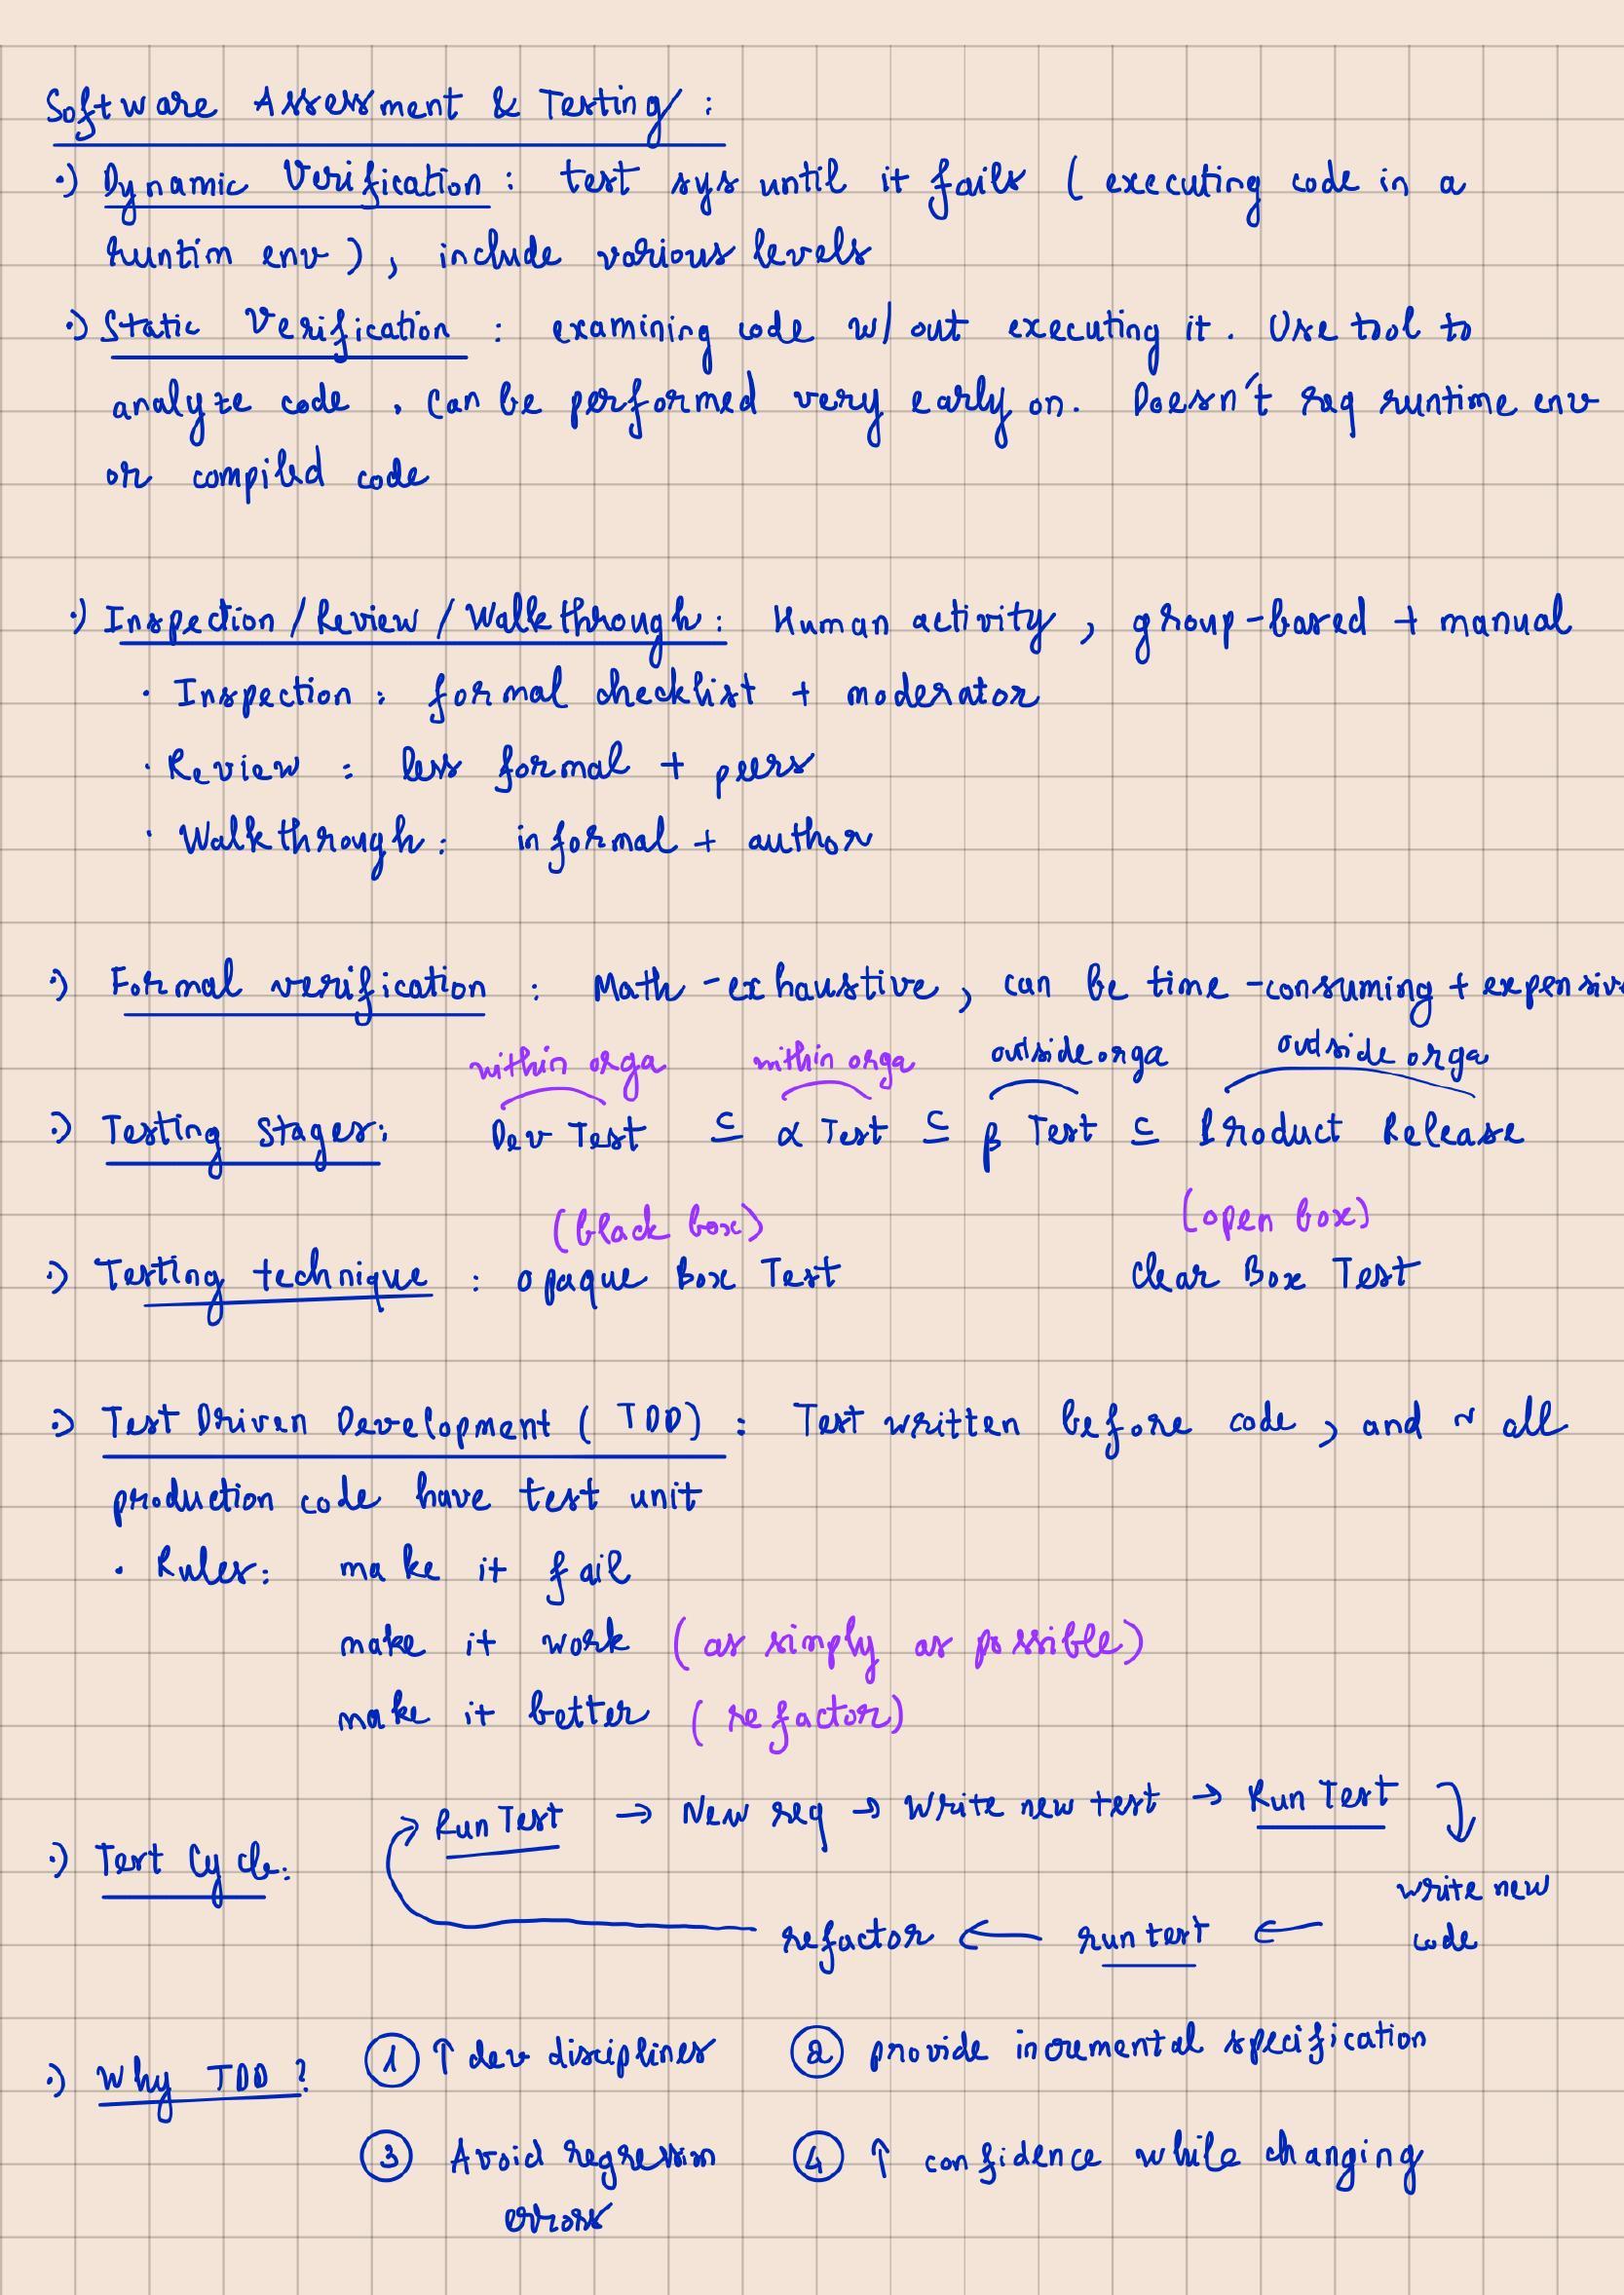 Software Assessment & Testing :
·) Dynamic Verification : test sys until it fails ( executing code in a
runtim env ) , include various levels
·) Static Verification : examining code w/ out executing it . Use tool to
analyze code . Can be performed very early on. Doesn't req runtime env
or compiled code
·) Inspection / Review / Walkthrough : Human activity , group-based + manual
· Inspection : formal checklist + moderator
· Review : less formal + peers
· Walkthrough : informal + author
·) Formal verification : Math - exhaustive , can be time - consuming + expensive
within orga within orga outside orga outside orga
·) Testing Stages : Dev Test ⊆ α Test ⊆ β Test ⊆ Product Release
(black box) (open box)
·) Testing technique : opaque Box Test clear Box Test
·) Test Driven Development ( TDD) : Test written before code , and ~ all
production code have test unit
· Rules : make it fail
make it work (as simply as possible)
make it better ( refactor)
Run Test → New req → Write new test → Run Test
·) Test Cycle :
write new
refactor ← run test ← code
·) Why TDD ? ① ↑ dev disciplines ② provide incremental specification
③ Avoid regression ④ ↑ confidence while changing
errors